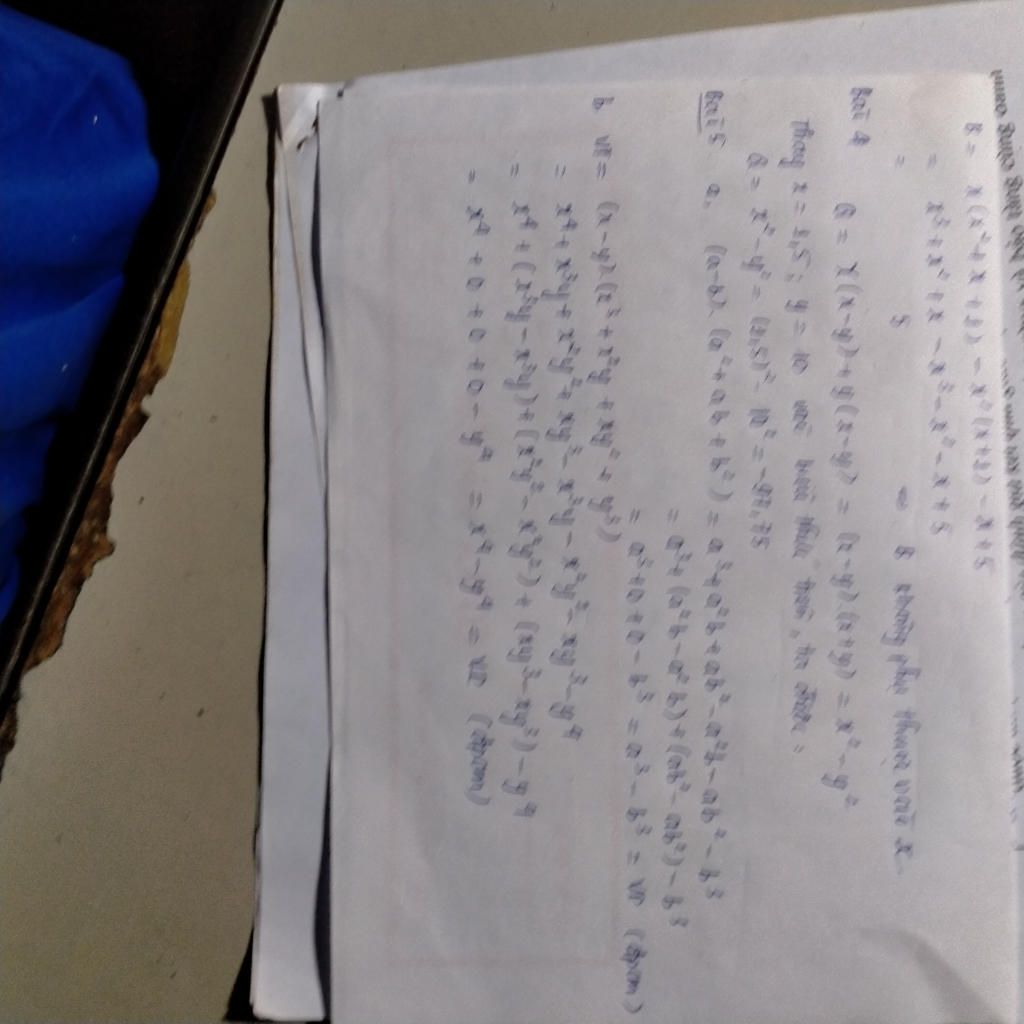 B = x(x² + x + 1) - x²(x + 1) - x + 5
= x³ + x² + x - x³ - x² - x + 5
= 5 ⇒ B không phụ thuộc vào x
Bài 4 Q = x(x - y) + y(x - y) = (x - y).(x + y) = x² - y²
Thay x = 1,5; y = 10 vào biểu thức trên, ta được:
Q = x² - y² = (1,5)² - 10² = -97,75
Bài 5 a, (a - b).(a² + ab + b²) = a³ + a²b + ab² - a²b - ab² - b³
= a³ + (a²b - a²b) + (ab² - ab²) - b³
= a³ + 0 + 0 - b³ = a³ - b³ = VP (đpcm)
b VT = (x - y).(x³ + x²y + xy² + y³)
= x⁴ + x³y + x²y² + xy³ - x³y - x²y² - xy³ - y⁴
= x⁴ + (x³y - x³y) + (x²y² - x²y²) + (xy³ - xy³) - y⁴
= x⁴ + 0 + 0 + 0 - y⁴ = x⁴ - y⁴ = VP (đpcm)